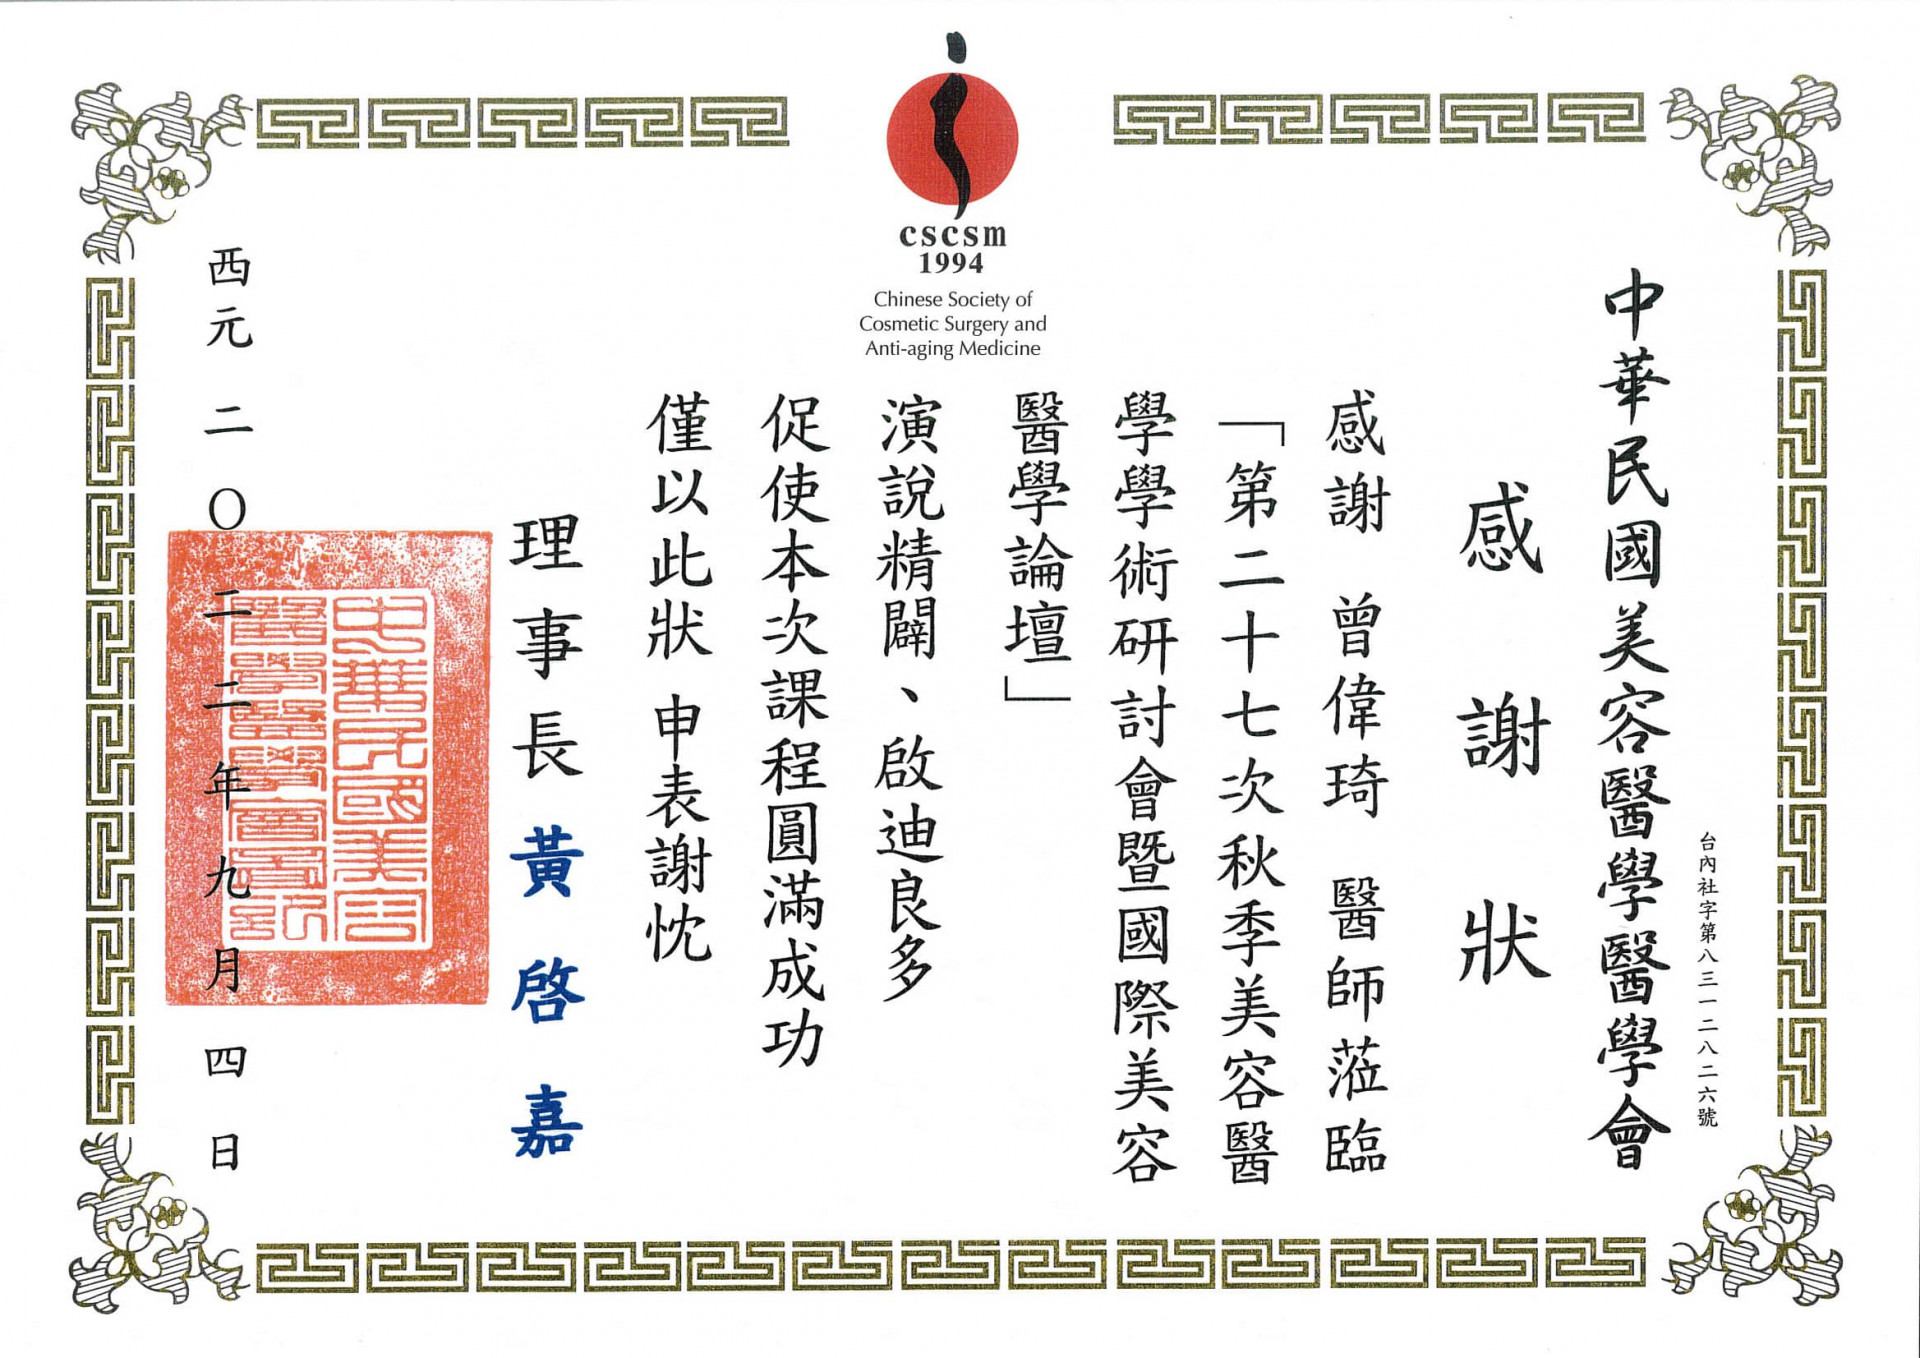 cscsm
1994
Chinese Society of
Cosmetic Surgery and
Anti-aging Medicine
台內社字第八三一二八二六號
中華民國美容醫學醫學會
感謝狀
感謝 曾偉琦 醫師蒞臨
「第二十七次秋季美容醫
學學術研討會暨國際美容
醫學論壇」
演說精闢、啟迪良多
促使本次課程圓滿成功
僅以此狀 申表謝忱
理事長 黃啓嘉
中華民國美容
醫學醫學會圖記
西元 二〇二二年九月四日